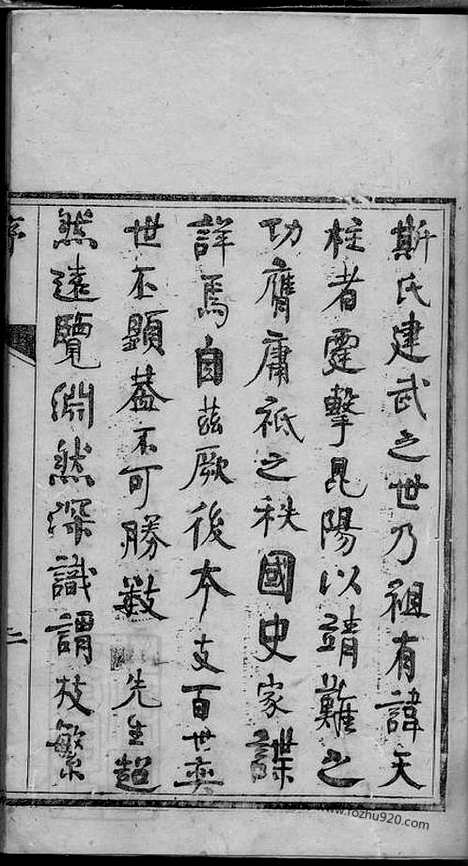 斯氏建武之世乃祖有諱天
柱者霆擊昆陽以靖難之
功膺庸祗之秩國史家諜
詳焉自茲厥後本支百世奕
世丕顯蓋不可勝數先生超
然遠覽淵然深識謂枝繁
序
二
www.fozhu920.com